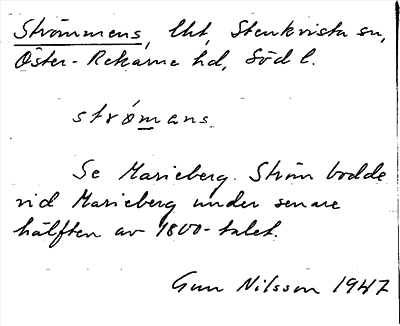 Strömmens, lht, Stenkvista sn,
Öster-Rekarne hd, Södl.
strómans.
Se Marieberg. Ström bodde
vid Marieberg under senare
hälften av 1800-talet.
Gun Nilsson 1947